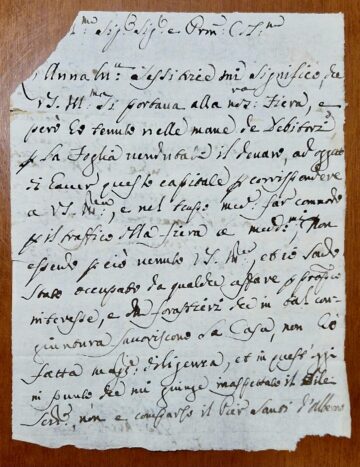 Ill.mo Sig.r Sig.r e Pron. C.S.mo
L'Anna M.a Tessitrice mi significò, che
V.S. Ill.ma si portava alla nos.ra Fiera, e
però hò tenuto nelle mane de Debitori
p la foglia vendutali il denaro, ad oggetto
di hauer questo capitale p corrispondere
a V.S. Ill.ma, e nel tempo med.o far commodo
p il traffico della fiera a med.mi; Non
essendo p ciò venuto V.S. Ill.ma, et io sendo
stato occupato da qualche affare p proprio
interesse, e da forastieri che in tal con-
giuntura favoriscono la Casa, non hò
fatta magg.r diligenza, et in quest'oggi
in punto che mi giunge inaspettato il
non è comparso il Pier Santi d'Alberto